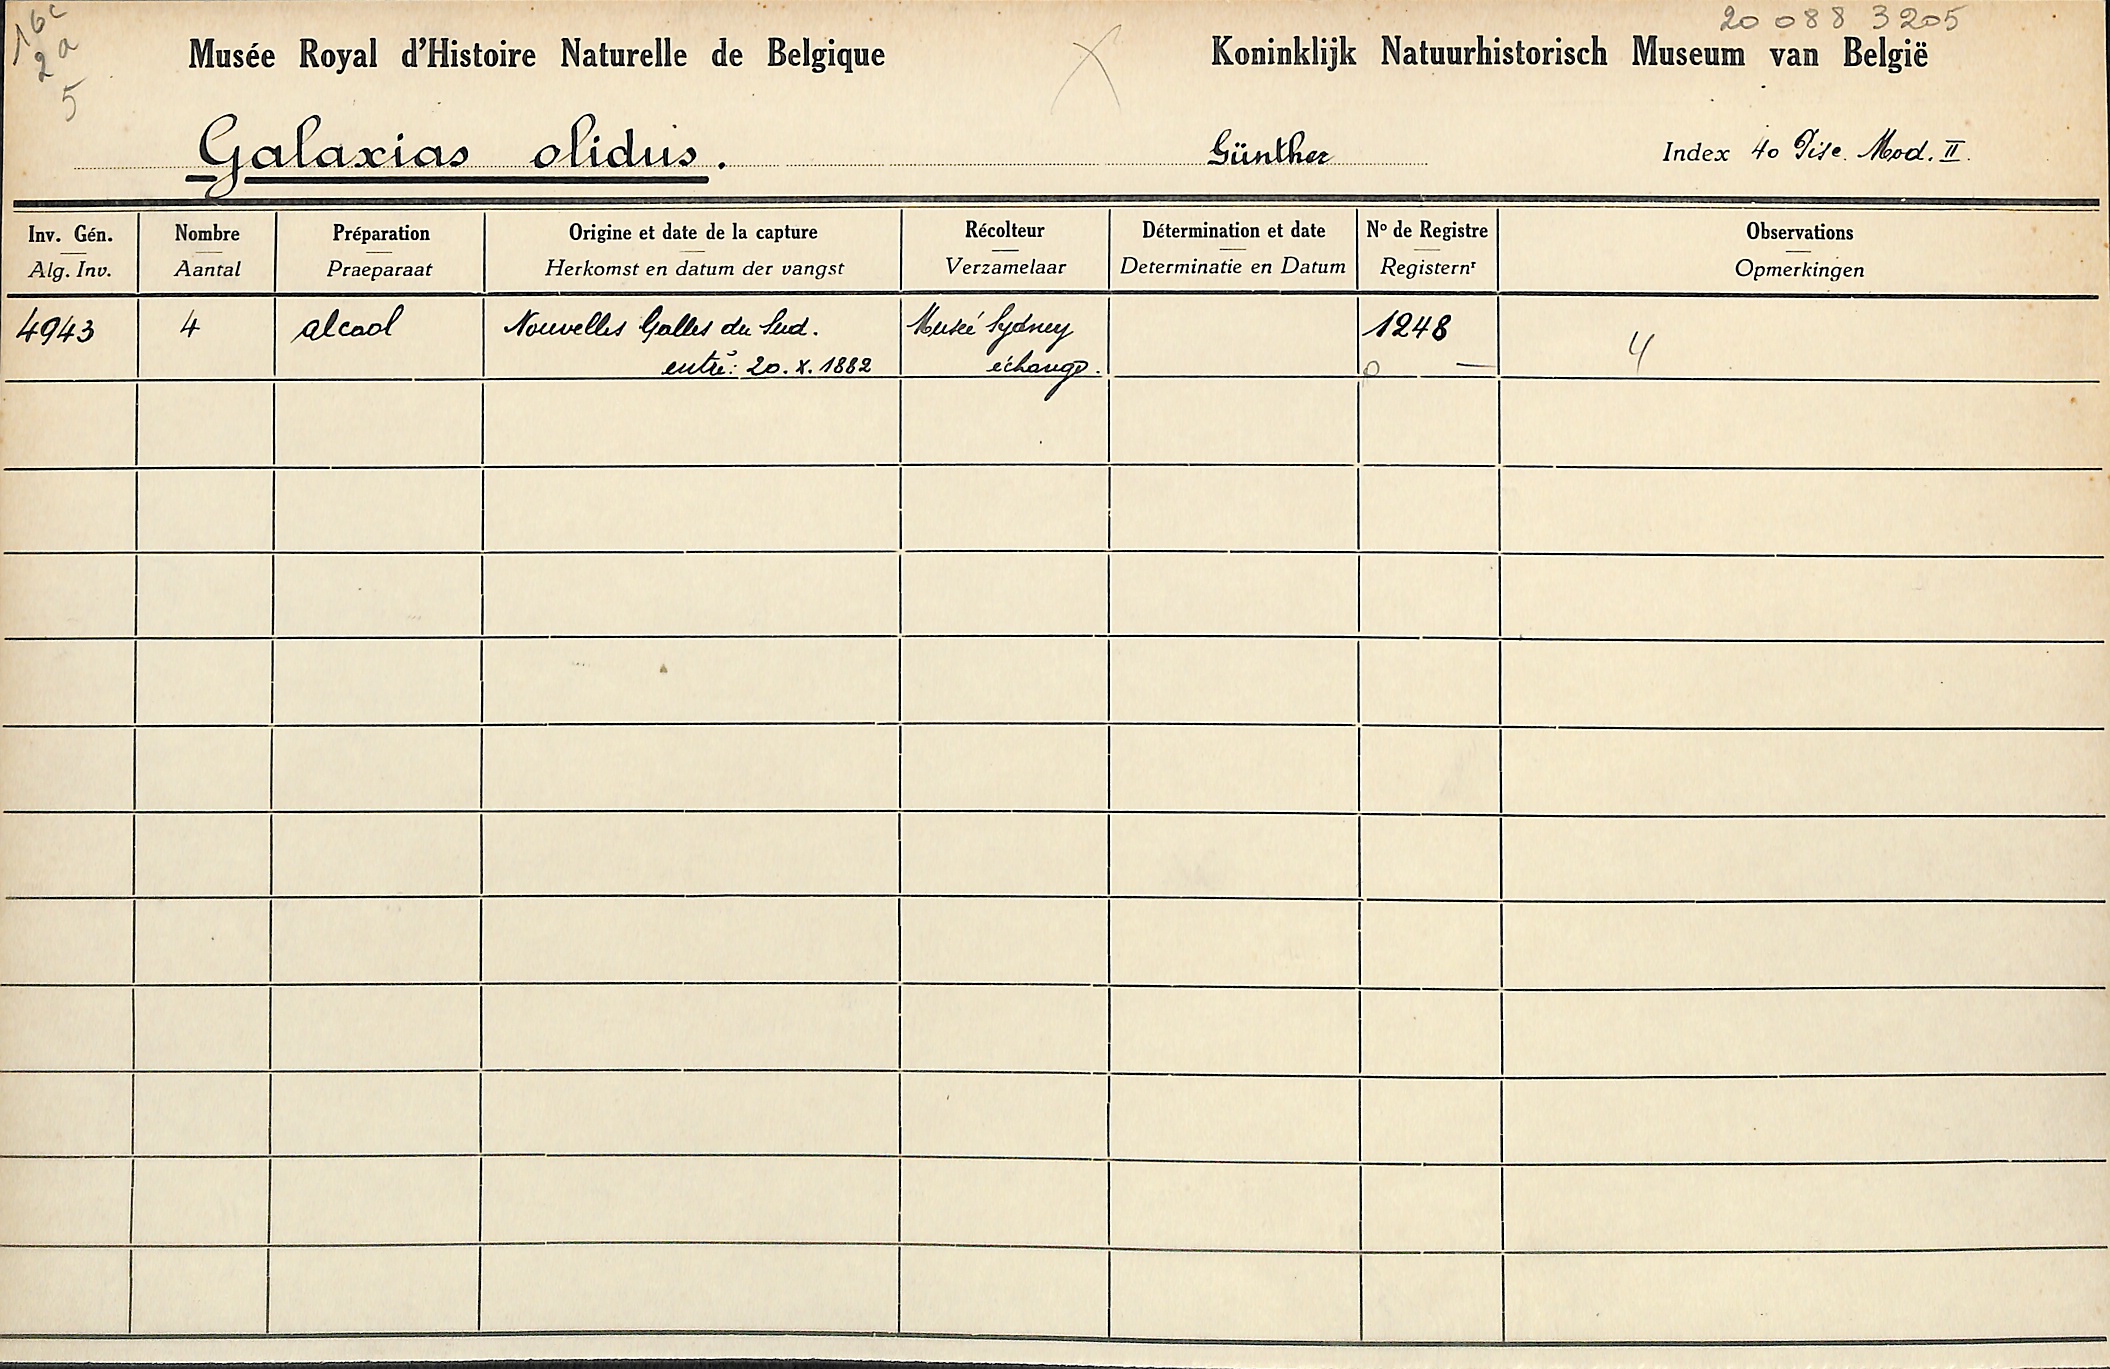 16c
2a
5
20 088 3205
Musée Royal d'Histoire Naturelle de Belgique
Koninklijk Natuurhistorisch Museum van België
Galaxias olidus. Günther Index 40 Pisc. Mod. II.
Inv. Gén. Nombre Préparation Origine et date de la capture Récolteur Détermination et date Nº de Registre Observations
Alg. Inv. Aantal Praeparaat Herkomst en datum der vangst Verzamelaar Determinatie en Datum Registernʳ Opmerkingen
4943 4 alcool Nouvelles Galles du Sud. Museé Sydney 1248 4
entré: 20. X. 1882 échange.